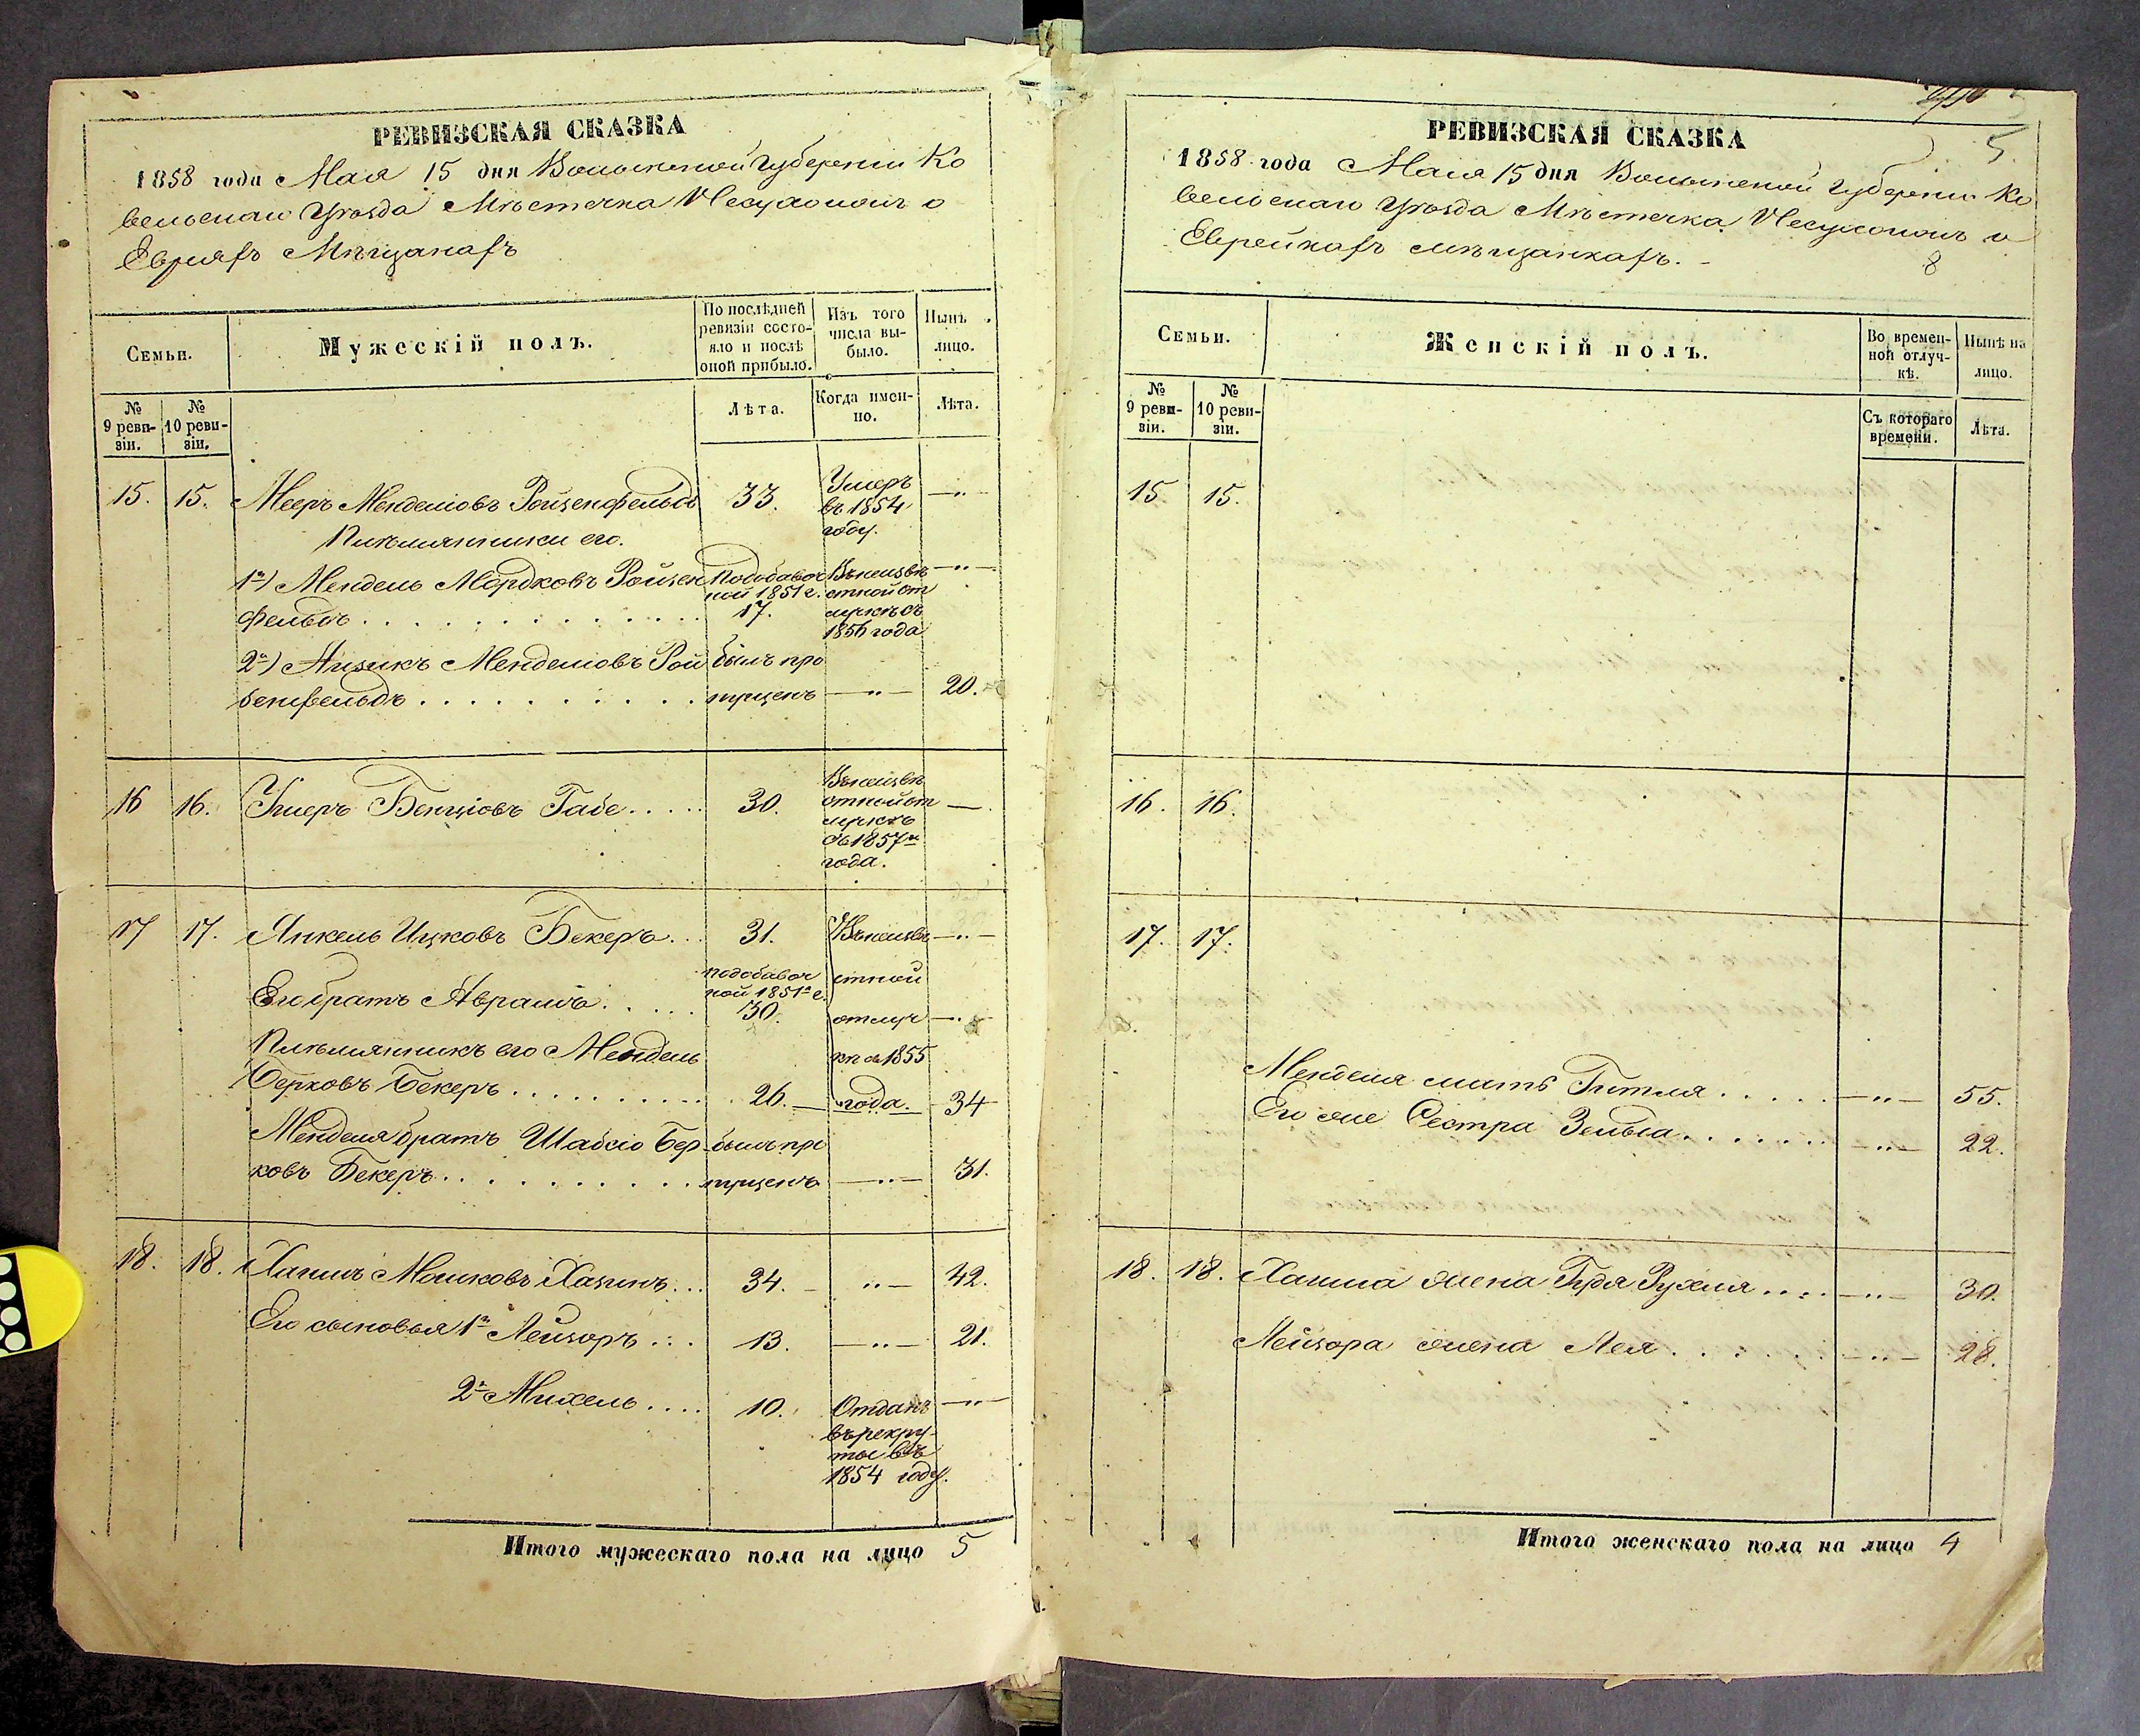 РЕВИЗСКАЯ СКАЗКА
1858 года Мая 15 дня Волынской губерніи Ко
вельскаго Уѣзда Мѣстечка Несухоижъ о
Евреяхъ Мѣщанахъ
Семьи.
Мужескій полъ.
По послѣдней ревизіи состояло и послѣ оной прибыло.
Изъ того числа выбыло.
Нынѣ лицо.
№ 9 ревизіи.
№ 10 ревизіи.
Лѣта.
Когда именно.
Лѣта.
15. 15. Мееръ Менделіовъ Ройзенфельдъ 33. Умеръ въ 1854 году. —"—
Племянники его.
1й) Мендель Мордковъ Ройзен
фельдъ . . . По добавоч
ной 1851 г.
17. Въ неизвѣ
стной от
лучкѣ съ
1856 года —"—
2й) Аизикъ Менделіовъ Рой
зенфельдъ . . . былъ про
пущенъ —"— 20.
16 16. Ушеръ Бенціовъ Габе . . . . . 30. Въ неизвѣ
стной от
лучкѣ
съ 1857го
года. —
17 17. Янкель Ицковъ Бекеръ . . . 31. Въ неизвѣ —"—
Его братъ Аврамъ . . . . . по добавоч
ной 1851го г.
30. стной
отлуч —"—
Племянникъ его Мендель кѣ съ 1855
Берковъ Бекеръ . . . 26. — года. — 34
Менделя братъ Шабсіо Бер былъ про
ковъ Бекеръ . . . пущенъ —"— 31.
18. 18. Хаимъ Мошковъ Хазинъ . . . 34. — "— 42.
Его сыновья 1й Лейзоръ . . . 13. —"— 21.
2й Михель . . . . 10. Отданъ
въ рекру
ты въ
1854 году. —"—
Итого мужескаго пола на лицо 5
5.
РЕВИЗСКАЯ СКАЗКА
1858 года Мая 15 дня Волынской губерніи Ко
вельскаго Уѣзда Мѣстечка Несухоижъ о
Еврейкахъ мѣщанкахъ. -
8
Семьи.
Женскій полъ.
Во временной отлучкѣ.
Нынѣ на лицо.
№ 9 ревизіи.
№ 10 ревизіи.
Съ котораго времени.
Лѣта.
15 15.
16. 16.
17. 17.
Менделя мать Гитля . . . . . —"— 55.
Его же Сестра Зельда . . . . . . . —"— 22.
18. 18. Хаима жена Гудя Рухля . . . . —"— 30.
Лейзора жена Лея . . . . . . —"— 28.
Итого женскаго пола на лицо 4